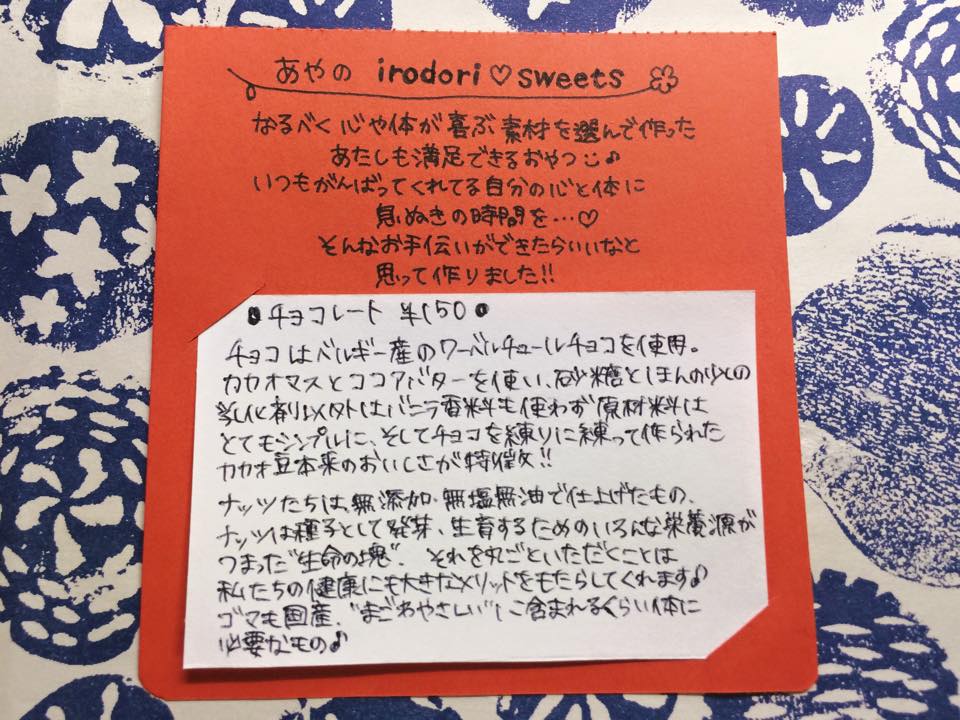 あやの irodori♡sweets
なるべく心や体が喜ぶ素材を選んで作った
あたしも満足できるおやつ☺♪
いつもがんばってくれてる自分の心と体に
息ぬきの時間を…♡
そんなお手伝いができたらいいなと
思って作りました!!
•チョコレート ¥150•
チョコはベルギー産のワーベルチュールチョコを使用。
カカオマスとココアバターを使い、砂糖とほんの少しの
乳化剤以外はバニラ香料も使わず原材料は
とてもシンプルに、そしてチョコを練りに練って作られた
カカオ豆本来のおいしさが特徴!!
ナッツたちは、無添加・無塩無油で仕上げたもの、
ナッツは種子として発芽、生育するためのいろんな栄養源が
つまった"生命の塊"。それを丸ごといただくことは
私たちの健康にも大きなメリットをもたらしてくれます♪
ゴマも国産、"まごわやさしい"に含まれるくらい体に
必要なもの♪